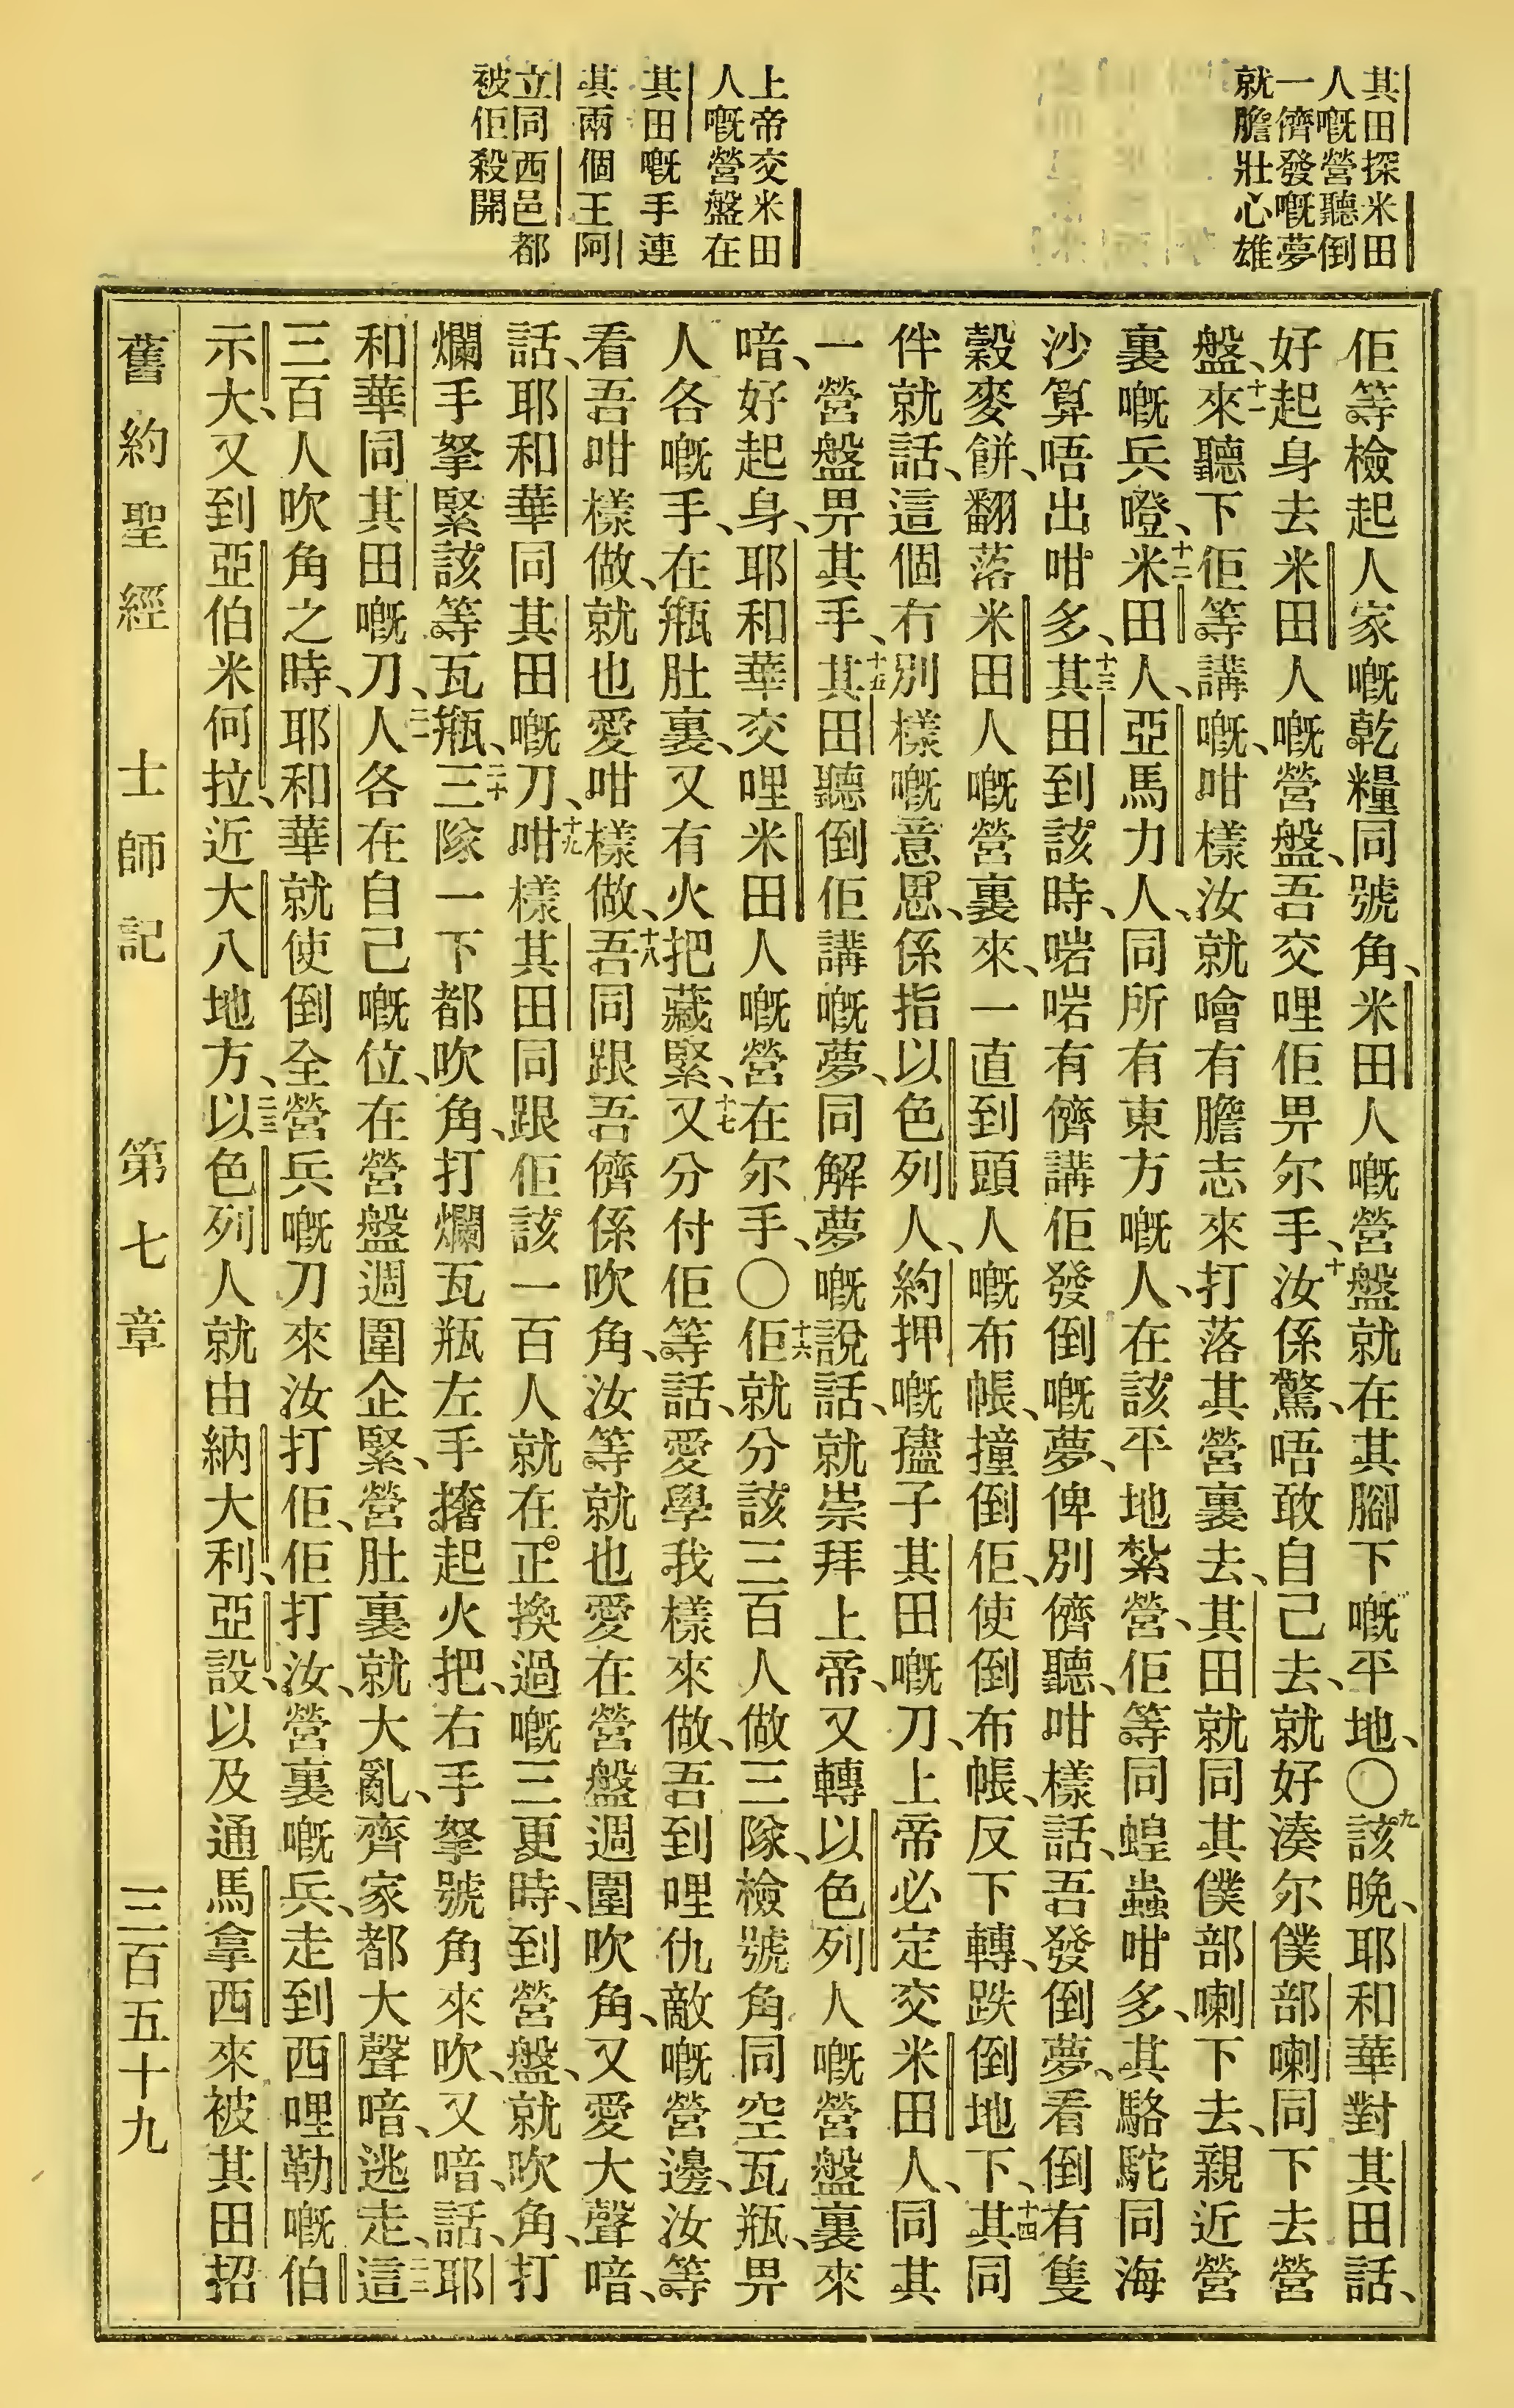 其田探米田
人嘅營聽倒
一儕發嘅夢
就膽壯心雄
上帝交米田
人嘅營盤在
其田嘅手連
其兩個王阿
立同西邑都
被佢殺開
佢等檢起人家嘅乾糧同號角、米田人嘅營盤就在其腳下嘅平地、〇九該晚、耶和華對其田話、
好起身去米田人嘅營盤、吾交哩佢畀尔手、十汝係驚、唔敢自己去、就好湊尔僕部喇同下去營
盤、十一來聽下佢等講嘅、咁樣汝就噲有膽志來打落其營裏去、其田就同其僕部喇下去、親近營
裏嘅兵噔、十二米田人、亞馬力人、同所有東方嘅人、在該平地紮營、佢等同蝗蟲咁多、其駱駝同海
沙算唔出咁多、十三其田到該時、啱啱有儕講佢發倒嘅夢、俾別儕聽、咁樣話、吾發倒夢、看倒有隻
穀麥餅、翻落米田人嘅營裏來、一直到頭人嘅布帳、撞倒佢、使倒布帳、反下轉、跌倒地下、十四其同
伴就話、這個冇別樣嘅意思、係指以色列人、約押嘅孻子其田嘅刀、上帝必定交米田人、同其
一營盤畀其手、十五其田聽倒佢講嘅夢、同解夢嘅說話、就崇拜上帝、又轉以色列人嘅營盤裏來
喑、好起身、耶和華交哩米田人嘅營在尔手、〇十六佢就分該三百人做三隊、檢號角同空瓦瓶、畀
人各嘅手、在瓶肚裏、又有火把藏緊、十七又分付佢等話、愛學我樣來做、吾到哩仇敵嘅營邊、汝等
看吾咁樣做、就也愛咁樣做、十八吾同跟吾儕係吹角、汝等就也愛在營盤週圍吹角、又愛大聲喑、
話、耶和華同其田嘅刀、十九咁樣其田同跟佢該一百人就在正換過嘅三更時、到營盤、就吹角、打
爛手拏緊該等瓦瓶、二十三隊一下都吹角、打爛瓦瓶、左手撍起火把、右手拏號角來吹、又喑、話、耶
和華同其田嘅刀、二一人各在自己嘅位、在營盤週圍企緊、營肚裏就大亂、齊家都大聲喑、逃走、二二這
三百人吹角之時、耶和華就使倒全營兵嘅刀來汝打佢、佢打汝、營裏嘅兵、走到西哩勒嘅伯
示大、又到亞伯米何拉、近大八地方、二三以色列人就由納大利、亞設、以及通馬拿西來被其田招
舊約聖經　士師記　第七章　三百五十九